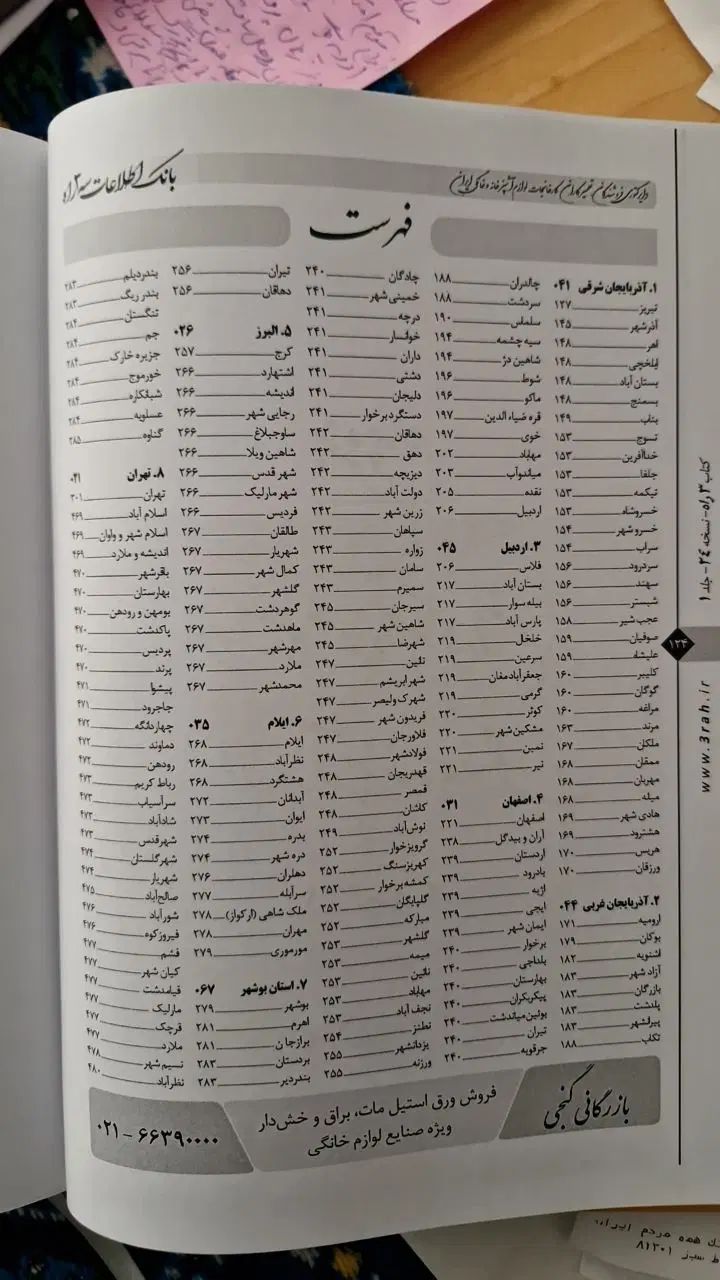 بانک اطلاعات سه راه
فهرست
۱. آذربایجان شرقی ۰۴۱
تبریز ۱۲۷
آذرشهر ۱۴۵
اهر ۱۴۸
ایلخچی ۱۴۸
بستان آباد ۱۴۸
بسمنج ۱۴۸
بناب ۱۴۹
تسوج ۱۵۳
خداآفرین ۱۵۳
جلفا ۱۵۳
تیکمه ۱۵۳
خسروشاه ۱۵۳
خسرو شهر ۱۵۴
سراب ۱۵۴
سردرود ۱۵۶
سهند ۱۵۶
شبستر ۱۵۶
عجب شیر ۱۵۸
صوفیان ۱۵۹
علیشاه ۱۵۹
کلیبر ۱۶۰
گوگان ۱۶۰
مراغه ۱۶۰
مرند ۱۶۳
ملکان ۱۶۷
ممقان ۱۶۸
مهربان ۱۶۸
میله ۱۶۸
هادی شهر ۱۶۹
هشترود ۱۶۹
هریس ۱۷۰
ورزقان ۱۷۰
۲. آذربایجان غربی ۰۴۴
ارومیه ۱۷۱
بوکان ۱۷۹
اشنویه ۱۸۲
آزاد شهر ۱۸۳
بازرگان ۱۸۳
پلدشت ۱۸۳
پیرانشهر ۱۸۳
تکاب ۱۸۸
چالدران ۱۸۸
سردشت ۱۸۸
سلماس ۱۹۰
سیه چشمه ۱۹۴
شاهین دژ ۱۹۴
شوط ۱۹۶
ماکو ۱۹۶
قره ضیاء الدین ۱۹۷
خوی ۱۹۷
مهاباد ۲۰۲
میاندوآب ۲۰۳
نقده ۲۰۵
اردبیل ۲۰۶
۳. اردبیل ۰۴۵
فلاس ۲۰۶
بستان آباد ۲۱۷
بیله سوار ۲۱۷
پارس آباد ۲۱۷
خلخال ۲۱۹
سرعین ۲۱۹
جعفرآباد مغان ۲۱۹
گرمی ۲۱۹
کوثر ۲۲۰
مشکین شهر ۲۲۰
نمین ۲۲۱
نیر ۲۲۱
۴. اصفهان ۰۳۱
اصفهان ۲۲۱
آران و بیدگل ۲۳۸
اردستان ۲۳۹
بادرود ۲۳۹
اژیه ۲۳۹
ایجی ۲۳۹
ایمان شهر ۲۳۹
برخوار ۲۴۰
بلداجی ۲۴۰
بهارستان ۲۴۰
پیکربکران ۲۴۰
بوئین میاندشت ۲۴۰
تیران ۲۴۰
جرقویه ۲۴۰
چادگان ۲۴۰
خمینی شهر ۲۴۱
درچه ۲۴۱
خوانسار ۲۴۱
داران ۲۴۱
دشتی ۲۴۱
دلیجان ۲۴۱
دستگرد برخوار ۲۴۱
دهاقان ۲۴۲
دهق ۲۴۲
دیزیچه ۲۴۲
دولت آباد ۲۴۲
زرین شهر ۲۴۲
سپاهان ۲۴۳
زواره ۲۴۳
سامان ۲۴۳
سمیرم ۲۴۳
سیرجان ۲۴۵
شاهین شهر ۲۴۵
شهرضا ۲۴۵
نائین ۲۴۷
شهر ابریشم ۲۴۷
شهرک ولیعصر ۲۴۷
فریدون شهر ۲۴۷
فلاورجان ۲۴۷
فولادشهر ۲۴۸
قهدریجان ۲۴۸
قمصر ۲۴۸
کاشان ۲۴۸
نوش‌آباد ۲۴۹
گرویزخوار ۲۵۲
کهریزسنگ ۲۵۲
کمشه برخوار ۲۵۲
گلپایگان ۲۵۲
مبارکه ۲۵۲
گلشهر ۲۵۳
میمه ۲۵۳
نائین ۲۵۳
مهاباد ۲۵۳
نجف آباد ۲۵۳
نطنز ۲۵۴
یزدانشهر ۲۵۵
ورزنه ۲۵۵
تیران ۲۵۶
دهاقان ۲۵۶
۵. البرز ۰۲۶
کرج ۲۵۷
اشتهارد ۲۶۶
اندیشه ۲۶۶
رجایی شهر ۲۶۶
ساوجبلاغ ۲۶۶
شاهین ویلا ۲۶۶
شهر قدس ۲۶۶
شهر مارلیک ۲۶۶
فردیس ۲۶۶
طالقان ۲۶۷
شهریار ۲۶۷
کمال شهر ۲۶۷
گلشهر ۲۶۷
گوهردشت ۲۶۷
ماهدشت ۲۶۷
مهرشهر ۲۶۷
ملارد ۲۶۷
محمدشهر ۲۶۷
۶. ایلام ۰۳۵
ایلام ۲۶۸
نظرآباد ۲۶۸
هشتگرد ۲۶۸
آبدانان ۲۷۲
ایوان ۲۷۳
بدره ۲۷۴
دره شهر ۲۷۴
دهلران ۲۷۶
سرآبله ۲۷۷
ملک شاهی (ارکواز) ۲۷۸
مهران ۲۷۸
مورموری ۲۷۹
۷. استان بوشهر ۰۶۷
بوشهر ۲۷۹
اهرم ۲۸۱
برازجان ۲۸۱
بردستان ۲۸۳
بندر دیر ۲۸۳
بندر دیلم ۲۸۳
بندر ریگ ۲۸۳
تنگستان ۲۸۴
جم ۲۸۴
جزیره خارک ۲۸۴
خورموج ۲۸۴
شبانکاره ۲۸۴
عسلویه ۲۸۴
گناوه ۲۸۵
۸. تهران ۰۲۱
تهران ۳۰۱
اسلام آباد ۴۶۹
اسلام شهر و واوان ۴۶۹
اندیشه و ملارد ۴۶۹
باقرشهر ۴۷۰
بهارستان ۴۷۰
بومهن و رودهن ۴۷۰
پاکدشت ۴۷۰
پردیس ۴۷۰
پرند ۴۷۰
پیشوا ۴۷۱
جاجرود ۴۷۱
چهاردانگه ۴۷۲
دماوند ۴۷۲
رودهن ۴۷۲
رباط کریم ۴۷۳
سرآسیاب ۴۷۳
شادآباد ۴۷۳
شهرقدس ۴۷۳
شهر گلستان ۴۷۴
شهریار ۴۷۴
صالح‌آباد ۴۷۵
شورآباد ۴۷۶
فیروزکوه ۴۷۶
فشم ۴۷۷
کیان شهر ۴۷۷
قیامدشت ۴۷۷
مارلیک ۴۷۷
قرچک ۴۷۷
ملارد ۴۷۷
نسیم شهر ۴۷۸
نظرآباد ۴۸۰
بازرگانی گنجی
فروش ورق استیل مات، براق و خش‌دار
ویژه صنایع لوازم خانگی
۰۲۱-۶۶۳۹۰۰۰۰
کتاب ۳ راه - نسخه ۲۴ - جلد ۱
۱۲۴
www.3rah.ir